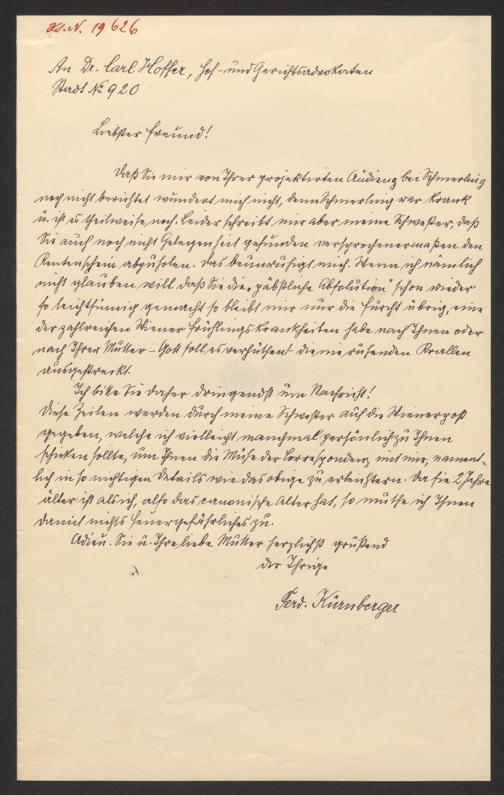 H.I.N. 19626
An Dr. Carl Hoffer, Hof- und Gerichtsadvokaten
Stadt No 920
Liebster Freund!
Daß Sie mir von Ihrer projektirten Audienz bei Schmerling
noch nicht berichtet wundert mich nicht, denn Schmerling war krank
u. ist es theilweise noch. Leider schreibt mir aber meine Schwester, daß
Sie auch noch nicht Gelegenheit gefunden versprochenermaßen den
Rentenschein abzuholen. Das beunruhigt mich. Wenn ich nämlich
nicht glauben will daß Sie die „päbstliche Absolution" schon wieder
so leichtsinnig gemacht so bleibt mir nur die Furcht übrig, eine
der zahlreichen Wiener Frühlingskrankheiten habe nach Ihnen oder
nach Ihrer Mutter – Gott soll es verhüthen! – die Krallen
ausgestreckt.
Ich bitte Sie daher dringendst um Nachricht!
Diese Zeilen werden durch meine Schwester auf die Wienerpost
gegeben, welche ich vielleicht manchmal persönlich zu Ihnen
schicken sollte, um Ihnen die Mühe der Correspondenz mit mir, nament-
lich in so nichtigen Details wie das obige zu erleichtern. Da sie 2 Jahre
älter ist als ich, also das canonische Alter hat, so muthe ich Ihnen
damit nichts Feuergefährliches zu.
Adieu. Sie u. Ihre liebe Mutter herzlichst grüßend
der Ihrige
Ferd. Kürnberger